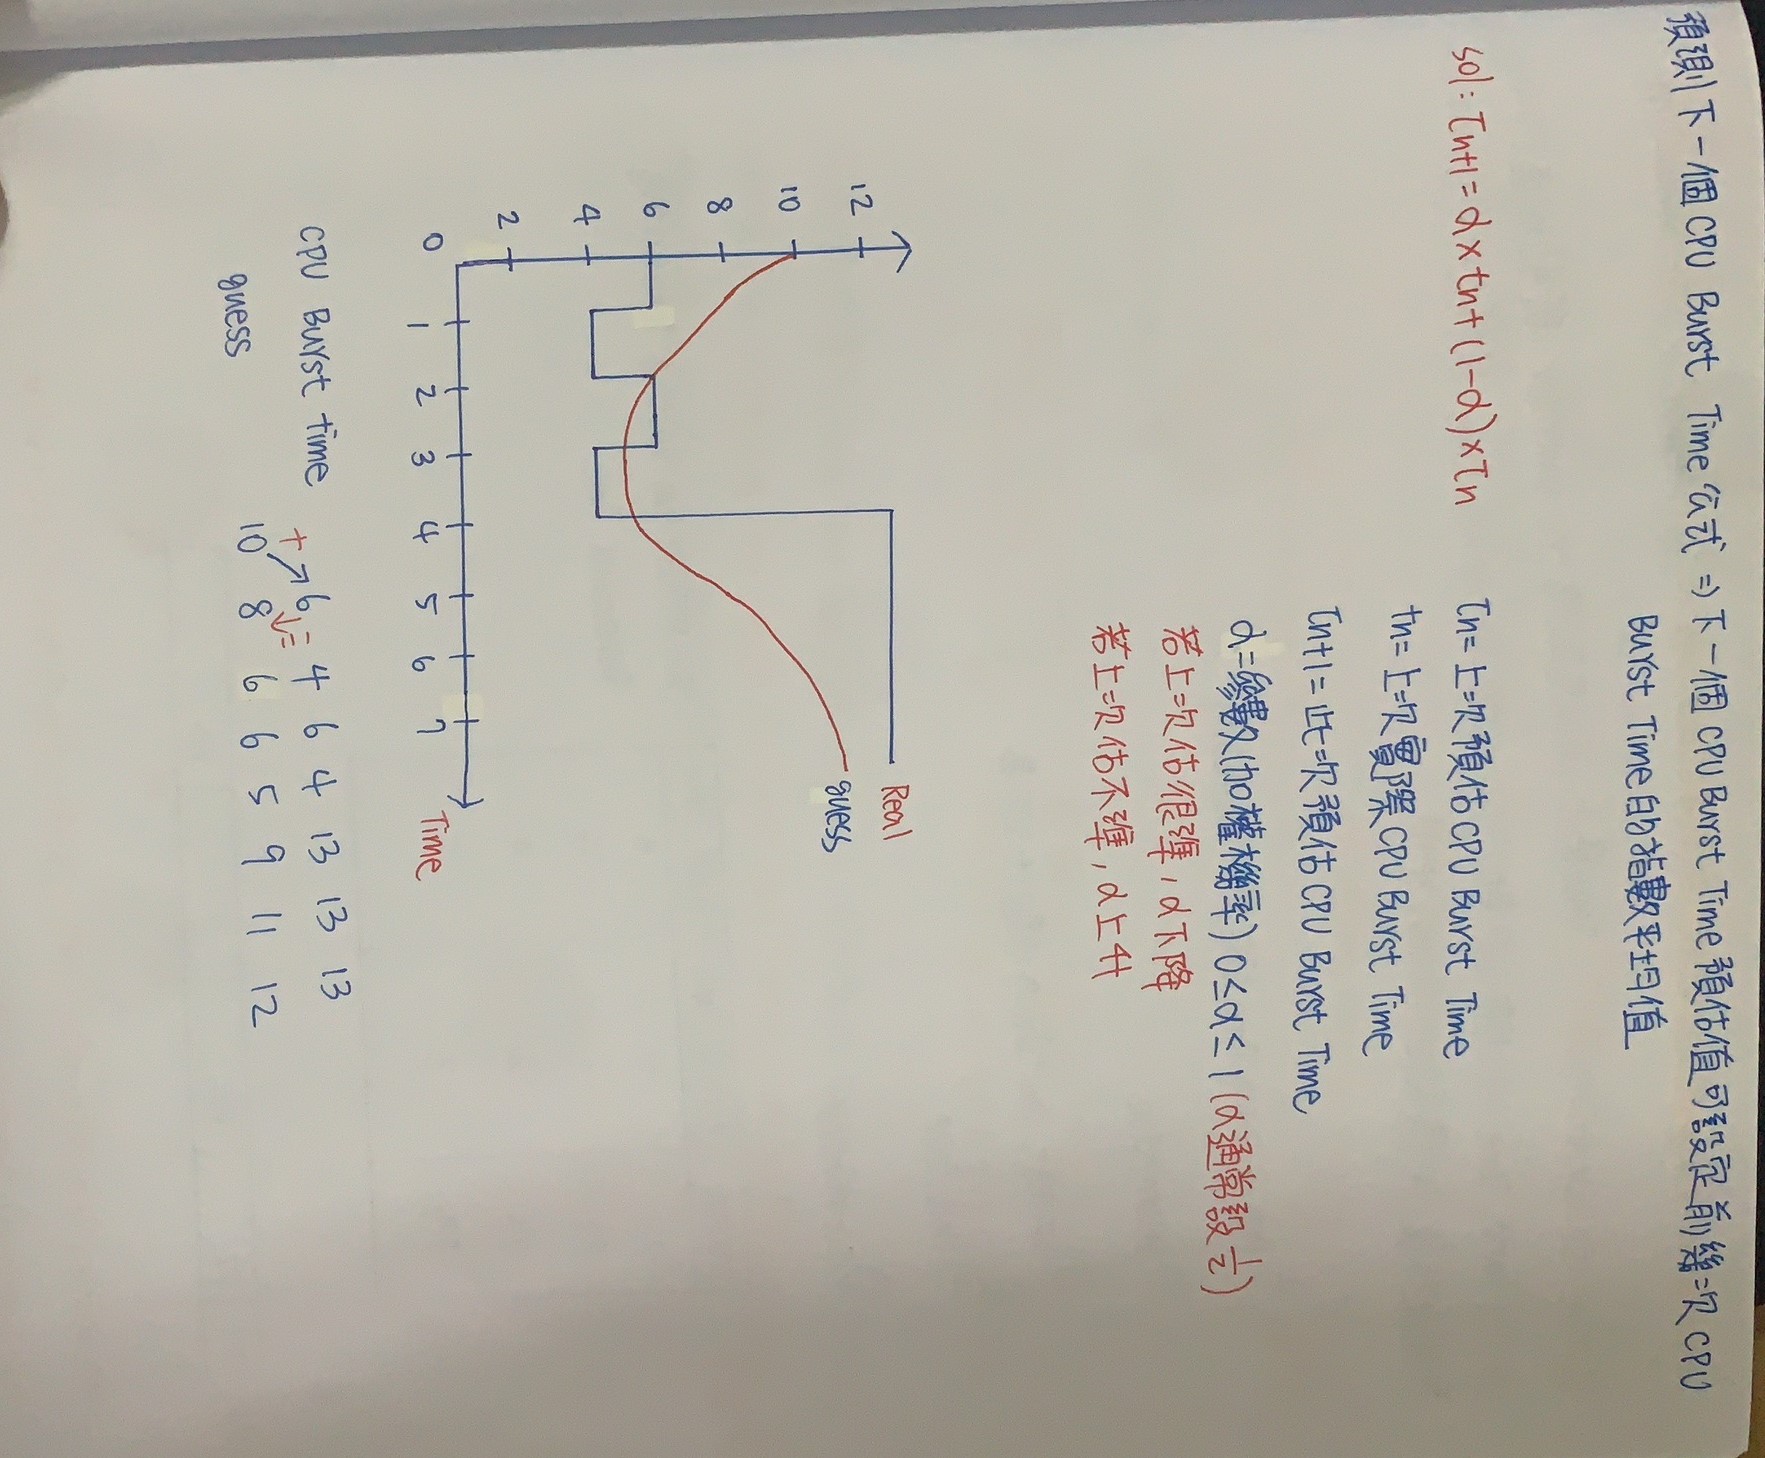 預測下一個 CPU Burst Time 公式 ⇒ 下一個 CPU Burst Time 預估值可設定前幾次 CPU
Burst Time 的指數平均值
sol: τn+1 = α × tn + (1-α) × τn
τn = 上次預估 CPU Burst Time
tn = 上次實際 CPU Burst Time
τn+1 = 此次預估 CPU Burst Time
α = 參數(加權機率) 0 ≤ α ≤ 1 (α通常設 1/2)
若上次估很準, α下降
若上次估不準, α上升
Real
guess
12
10
8
6
4
2
0 1 2 3 4 5 6 7 Time
CPU Burst time + 6 = 4 6 4 13 13 13
guess 10 8 6 6 5 9 11 12